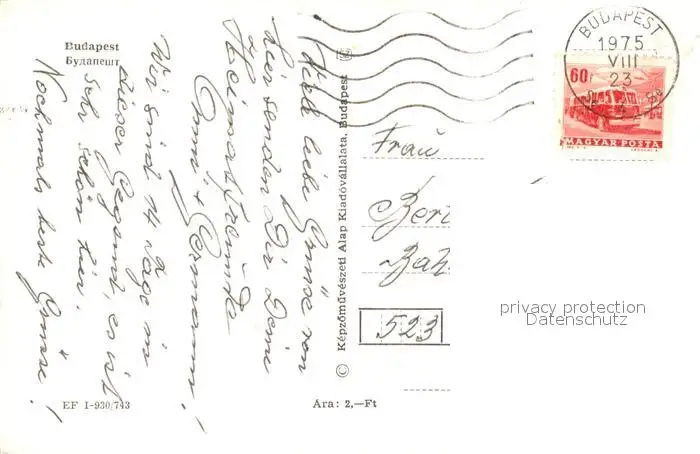 Budapest
Будапешт
Viele liebe Grüße von
hier senden Dir Deine
Heimatfreunde
Omi + Hermann!
Wir sind 14 Tage in
dieser Gegend, es ist
sehr schön hier.
Nochmals beste Grüße!
EF I-930/743
Ára: 2,-Ft
© Képzőművészeti Alap Kiadóvállalata, Budapest
BUDAPEST
1975
VIII
23
60f
MAGYAR POSTA
Frau
Beri
Bah
523
privacy protection
Datenschutz